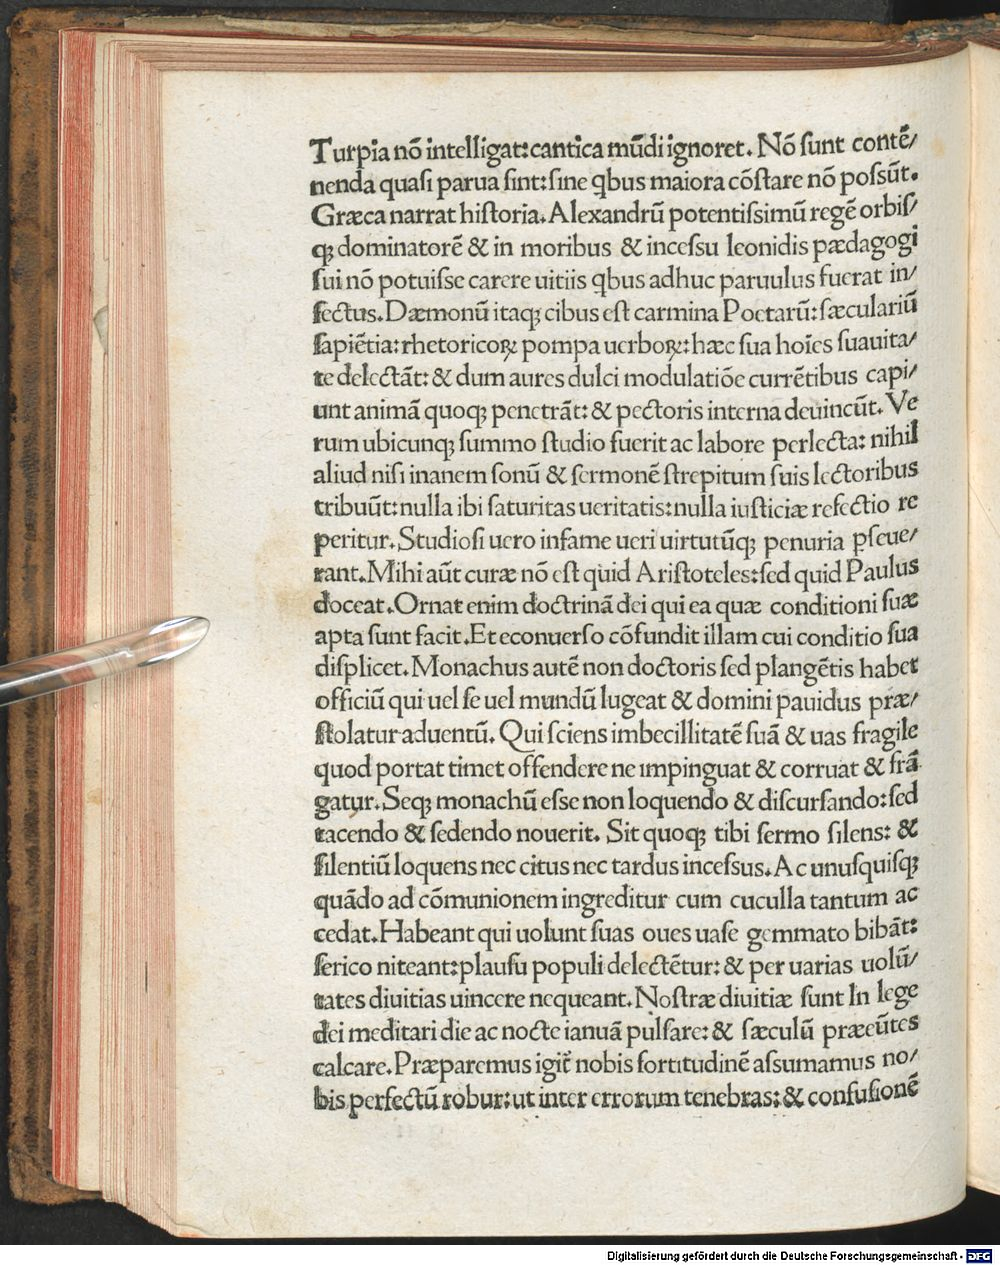 Turpia nō intelligat:cantica mūdi ignoret. Nō ſunt contē/
nenda quaſi parua ſint:ſine qbus maiora cōſtare nō poſſūt.
Græca narrat hiſtoria. Alexandrū potentiſſimū regē orbiſ/
qꝫ dominatorē & in moribus & inceſſu leonidis pædagogi
ſui nō potuiſſe carere uitiis qbus adhuc paruulus fuerat in/
fectus. Dæmonū itaqꝫ cibus eſt carmina Poetarū: ſæculariū
ſapiētia: rhetoricoꝝ pompa uerboꝝ: hæc ſua hoīes ſuauita/
te delectāt: & dum aures dulci modulatiōe currētibus capi/
unt animā quoqꝫ penetrāt: & pectoris interna deuincūt. Ve
rum ubicunqꝫ ſummo ſtudio fuerit ac labore perlecta: nihil
aliud niſi inanem ſonū & ſermonē ſtrepitum ſuis lectoribus
tribuūt: nulla ibi ſaturitas ueritatis: nulla iuſticiæ refectio re
peritur. Studioſi uero infame ueri uirtutūqꝫ penuria ꝑſeue/
rant. Mihi aūt curæ nō eſt quid Ariſtoteles: ſed quid Paulus
doceat. Ornat enim doctrinā dei qui ea quæ conditioni ſuæ
apta ſunt facit. Et econuerſo cōfundit illam cui conditio ſua
diſplicet. Monachus autē non doctoris ſed plangētis habet
officiū qui uel ſe uel mundū lugeat & domini pauidus præ/
ſtolatur aduentū. Qui ſciens imbecillitatē ſuā & uas fragile
quod portat timet offendere ne impinguat & corruat & frā
gatur. Seqꝫ monachū eſſe non loquendo & diſcurſando: ſed
tacendo & ſedendo nouerit. Sit quoqꝫ tibi ſermo ſilens: &
ſilentiū loquens nec citus nec tardus inceſſus. Ac unuſquiſqꝫ
quādo ad cōmunionem ingreditur cum cuculla tantum ac
cedat. Habeant qui uolunt ſuas oues uaſe gemmato bibāt:
ſerico niteant: plauſu populi delectētur: & per uarias uolū/
tates diuitias uincere nequeant. Noſtræ diuitiæ ſunt In lege
dei meditari die ac nocte ianuā pulſare: & ſæculū præeūtes
calcare. Præparemus igit̄ nobis fortitudinē aſſumamus no/
bis perfectū robur: ut inter errorum tenebras: & confuſionē
Digitalisierung gefördert durch die Deutsche Forschungsgemeinschaft - DFG